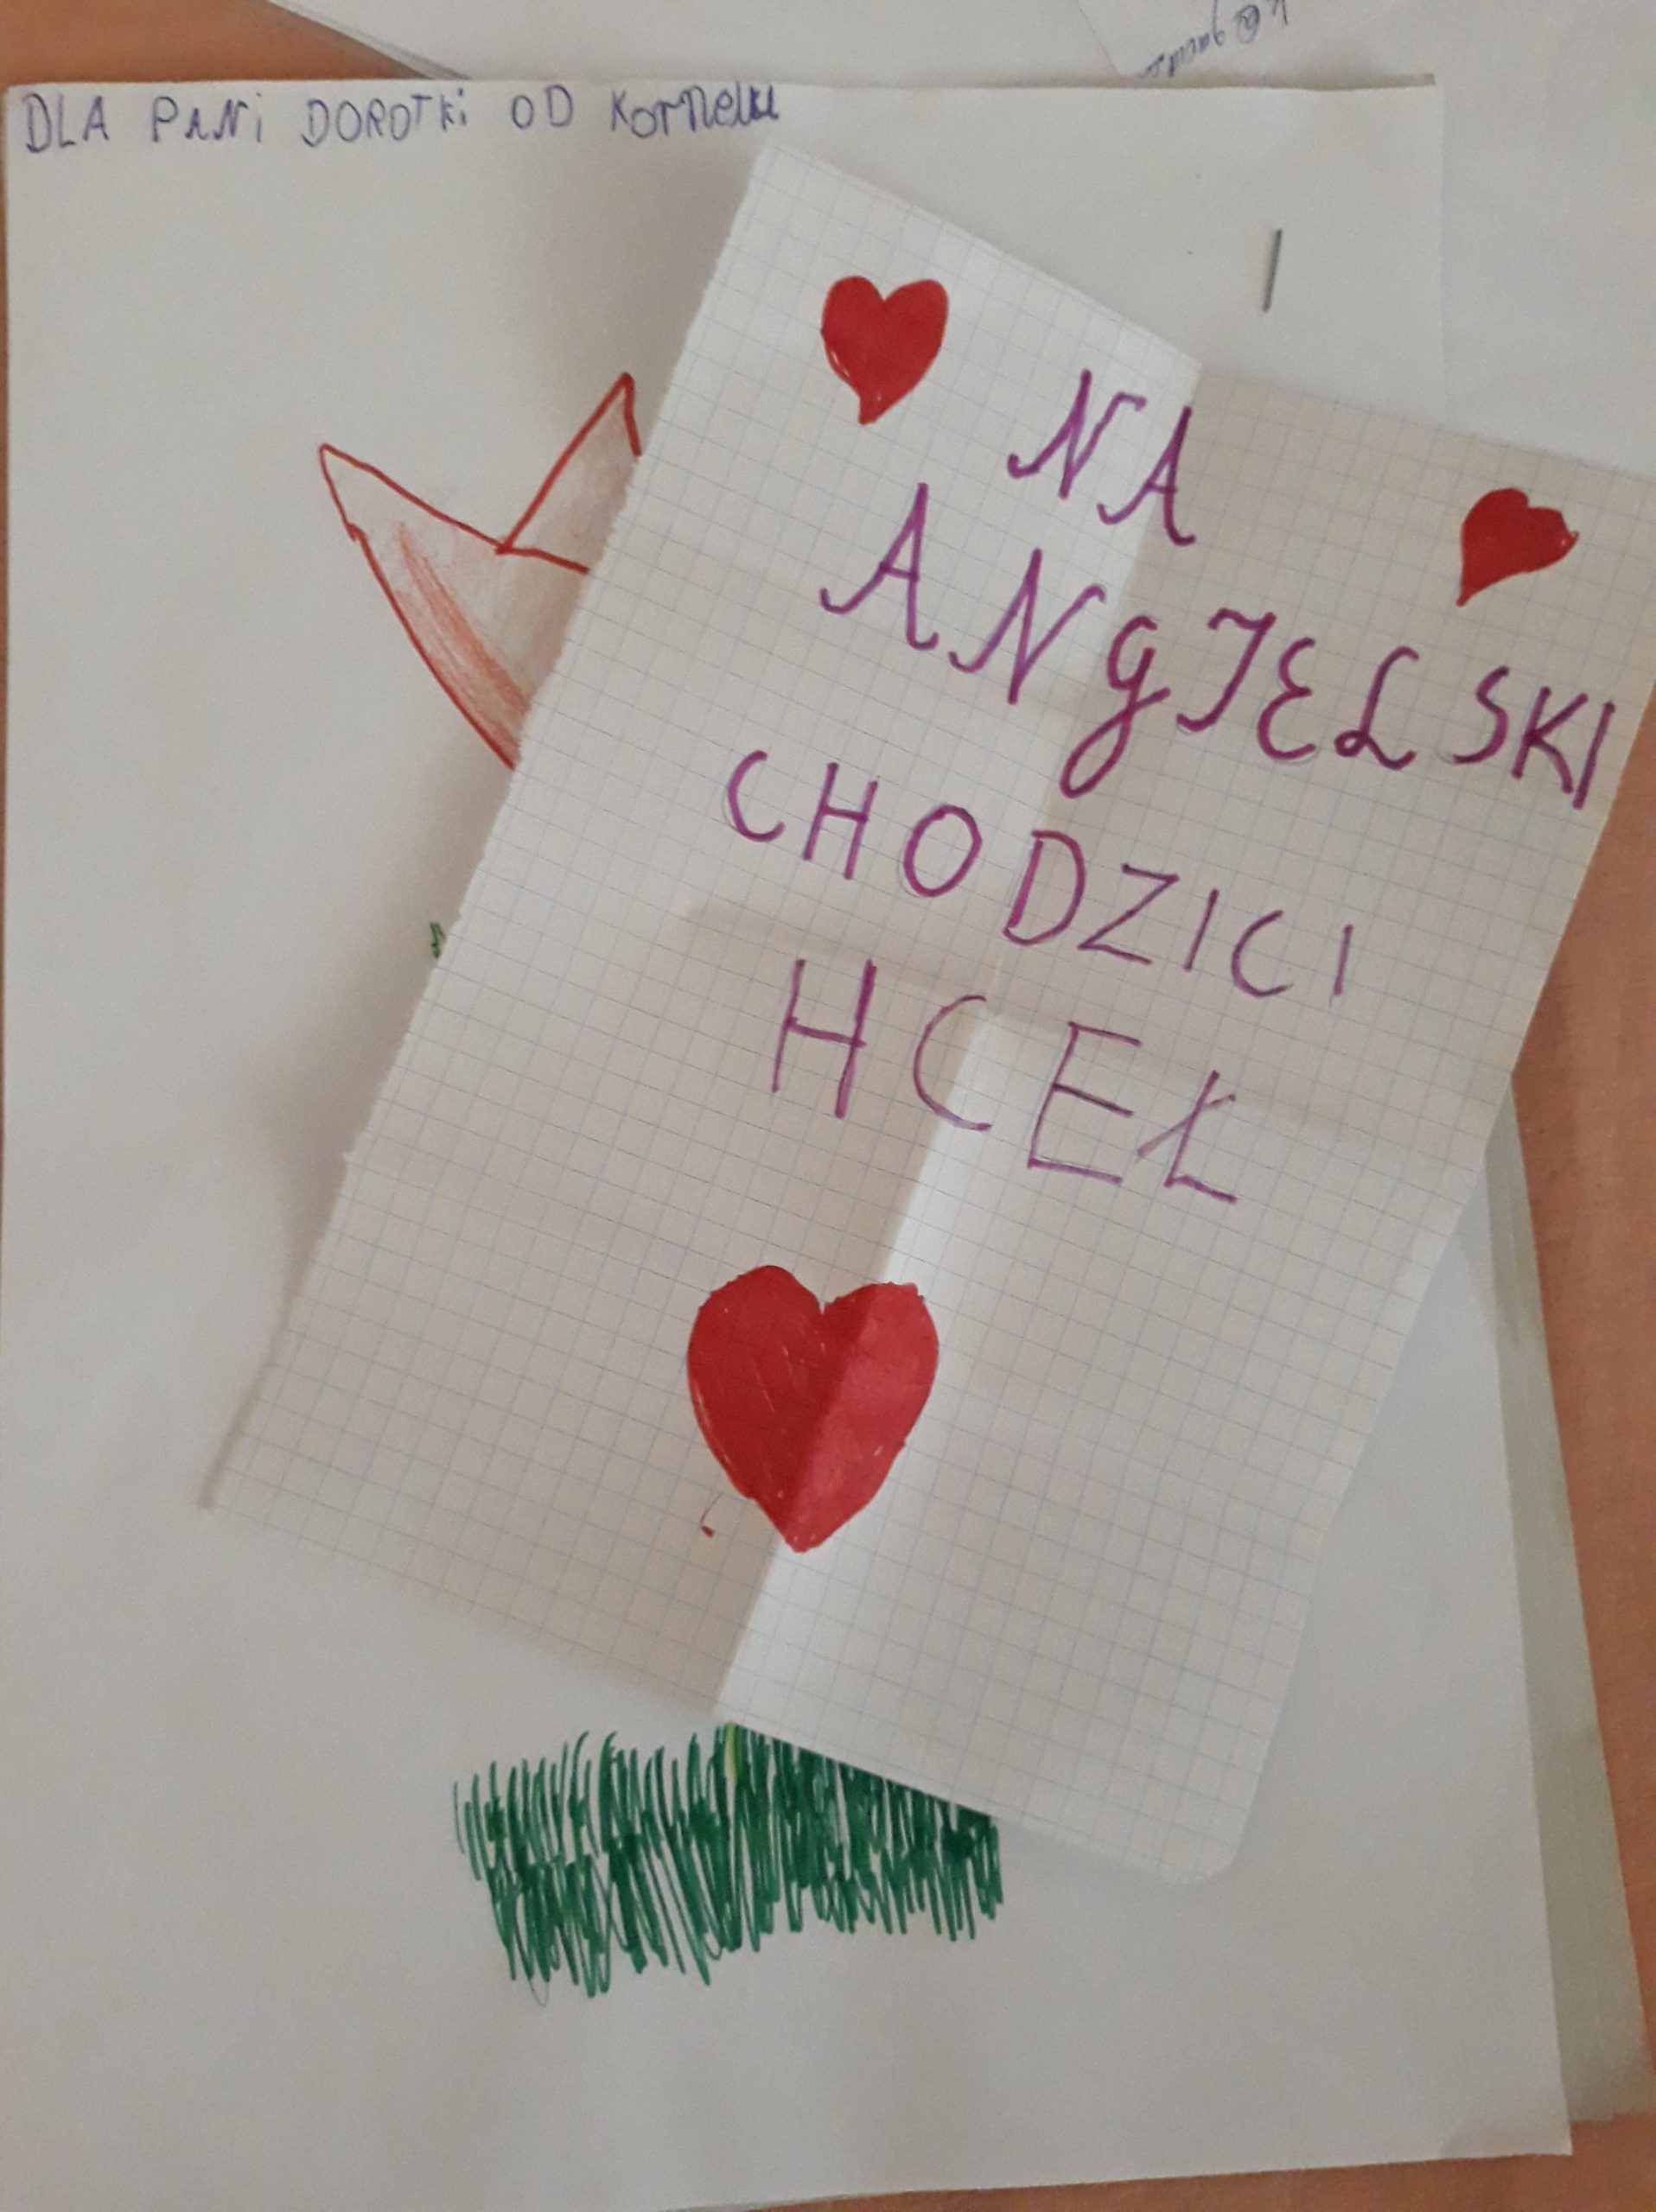 DLA PANi DOROTKi OD Kornelki
NA
ANGIELSKI
CHODZICI
HCEŁ